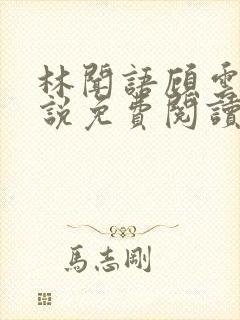 林聞語顧雲
說免費閱讀
馬志剛